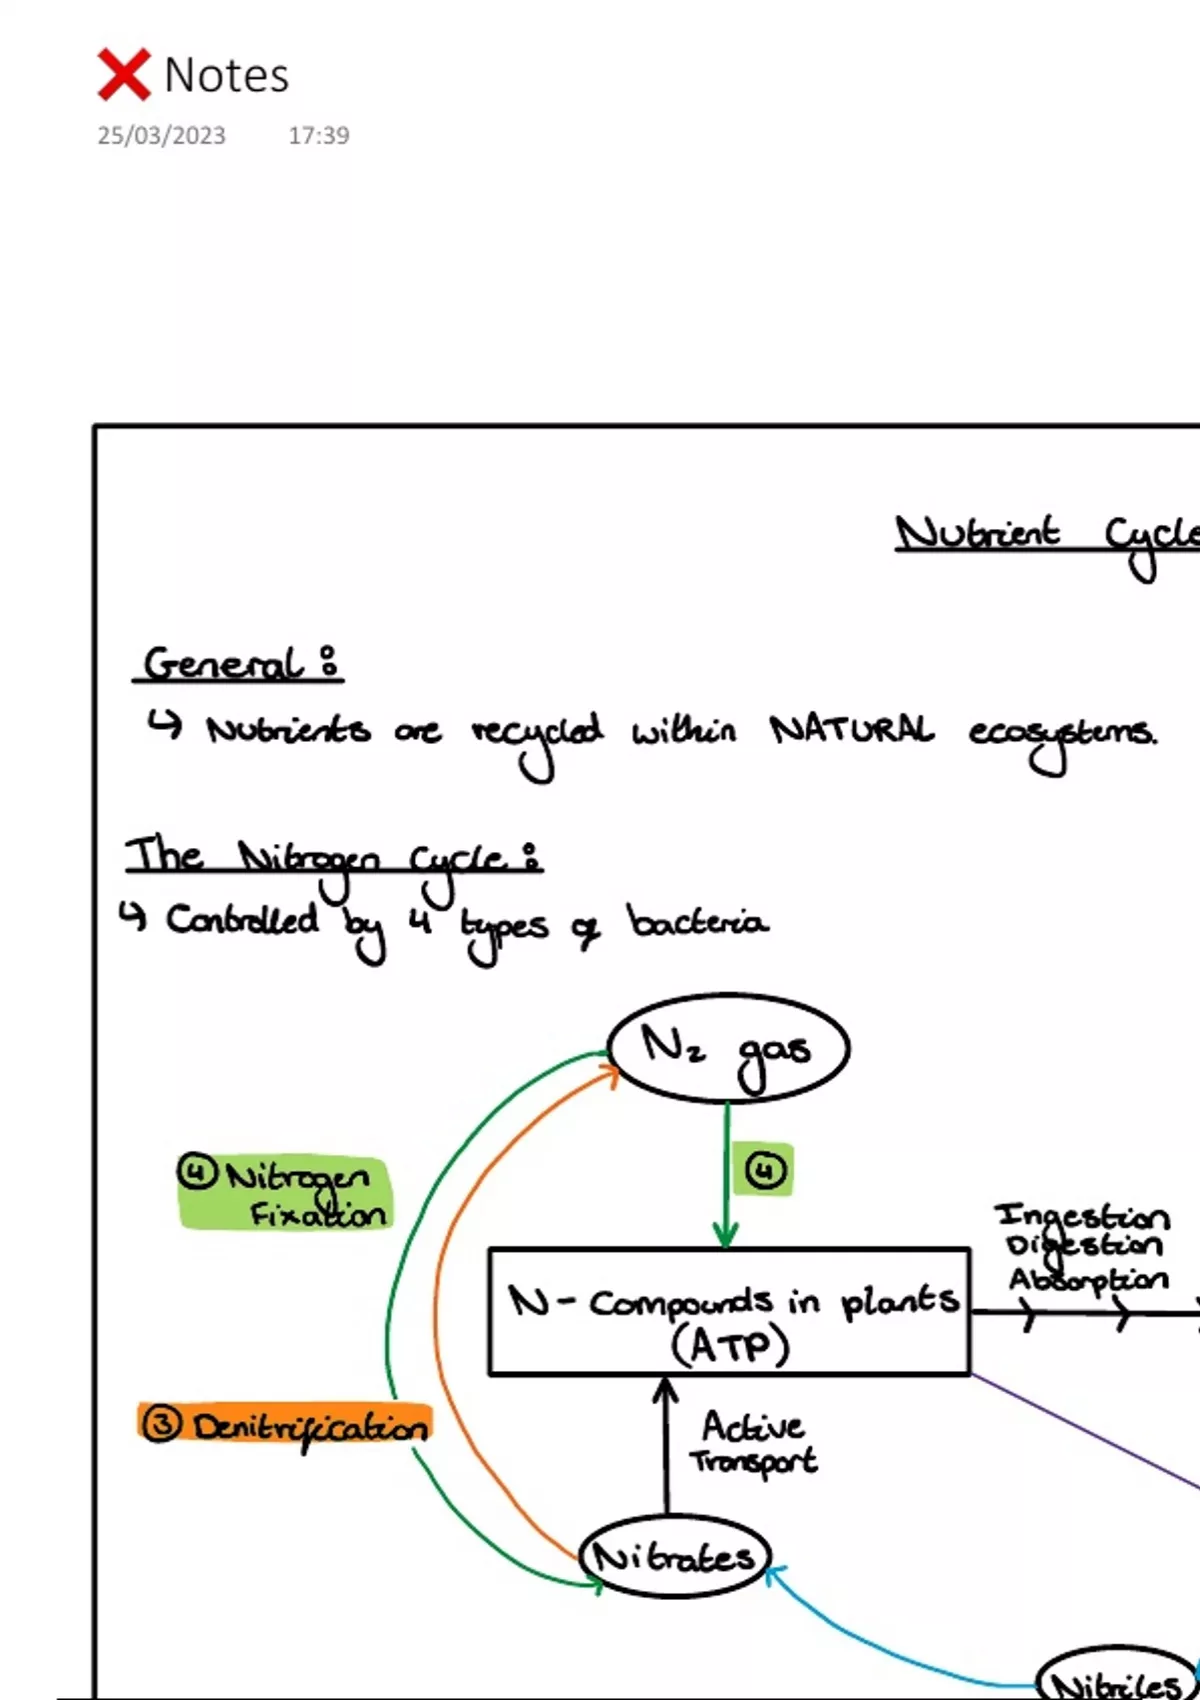 ❌ Notes
25/03/2023 17:39
Nutrient Cycle
General:
↳ Nutrients are recycled within NATURAL ecosystems.
The Nitrogen Cycle:
↳ Controlled by 4 types of bacteria
N₂ gas
④ Nitrogen
Fixation
④
Ingestion
Digestion
Absorption
N-Compounds in plants
(ATP)
③ Denitrification
Active
Transport
Nitrates
Nitriles